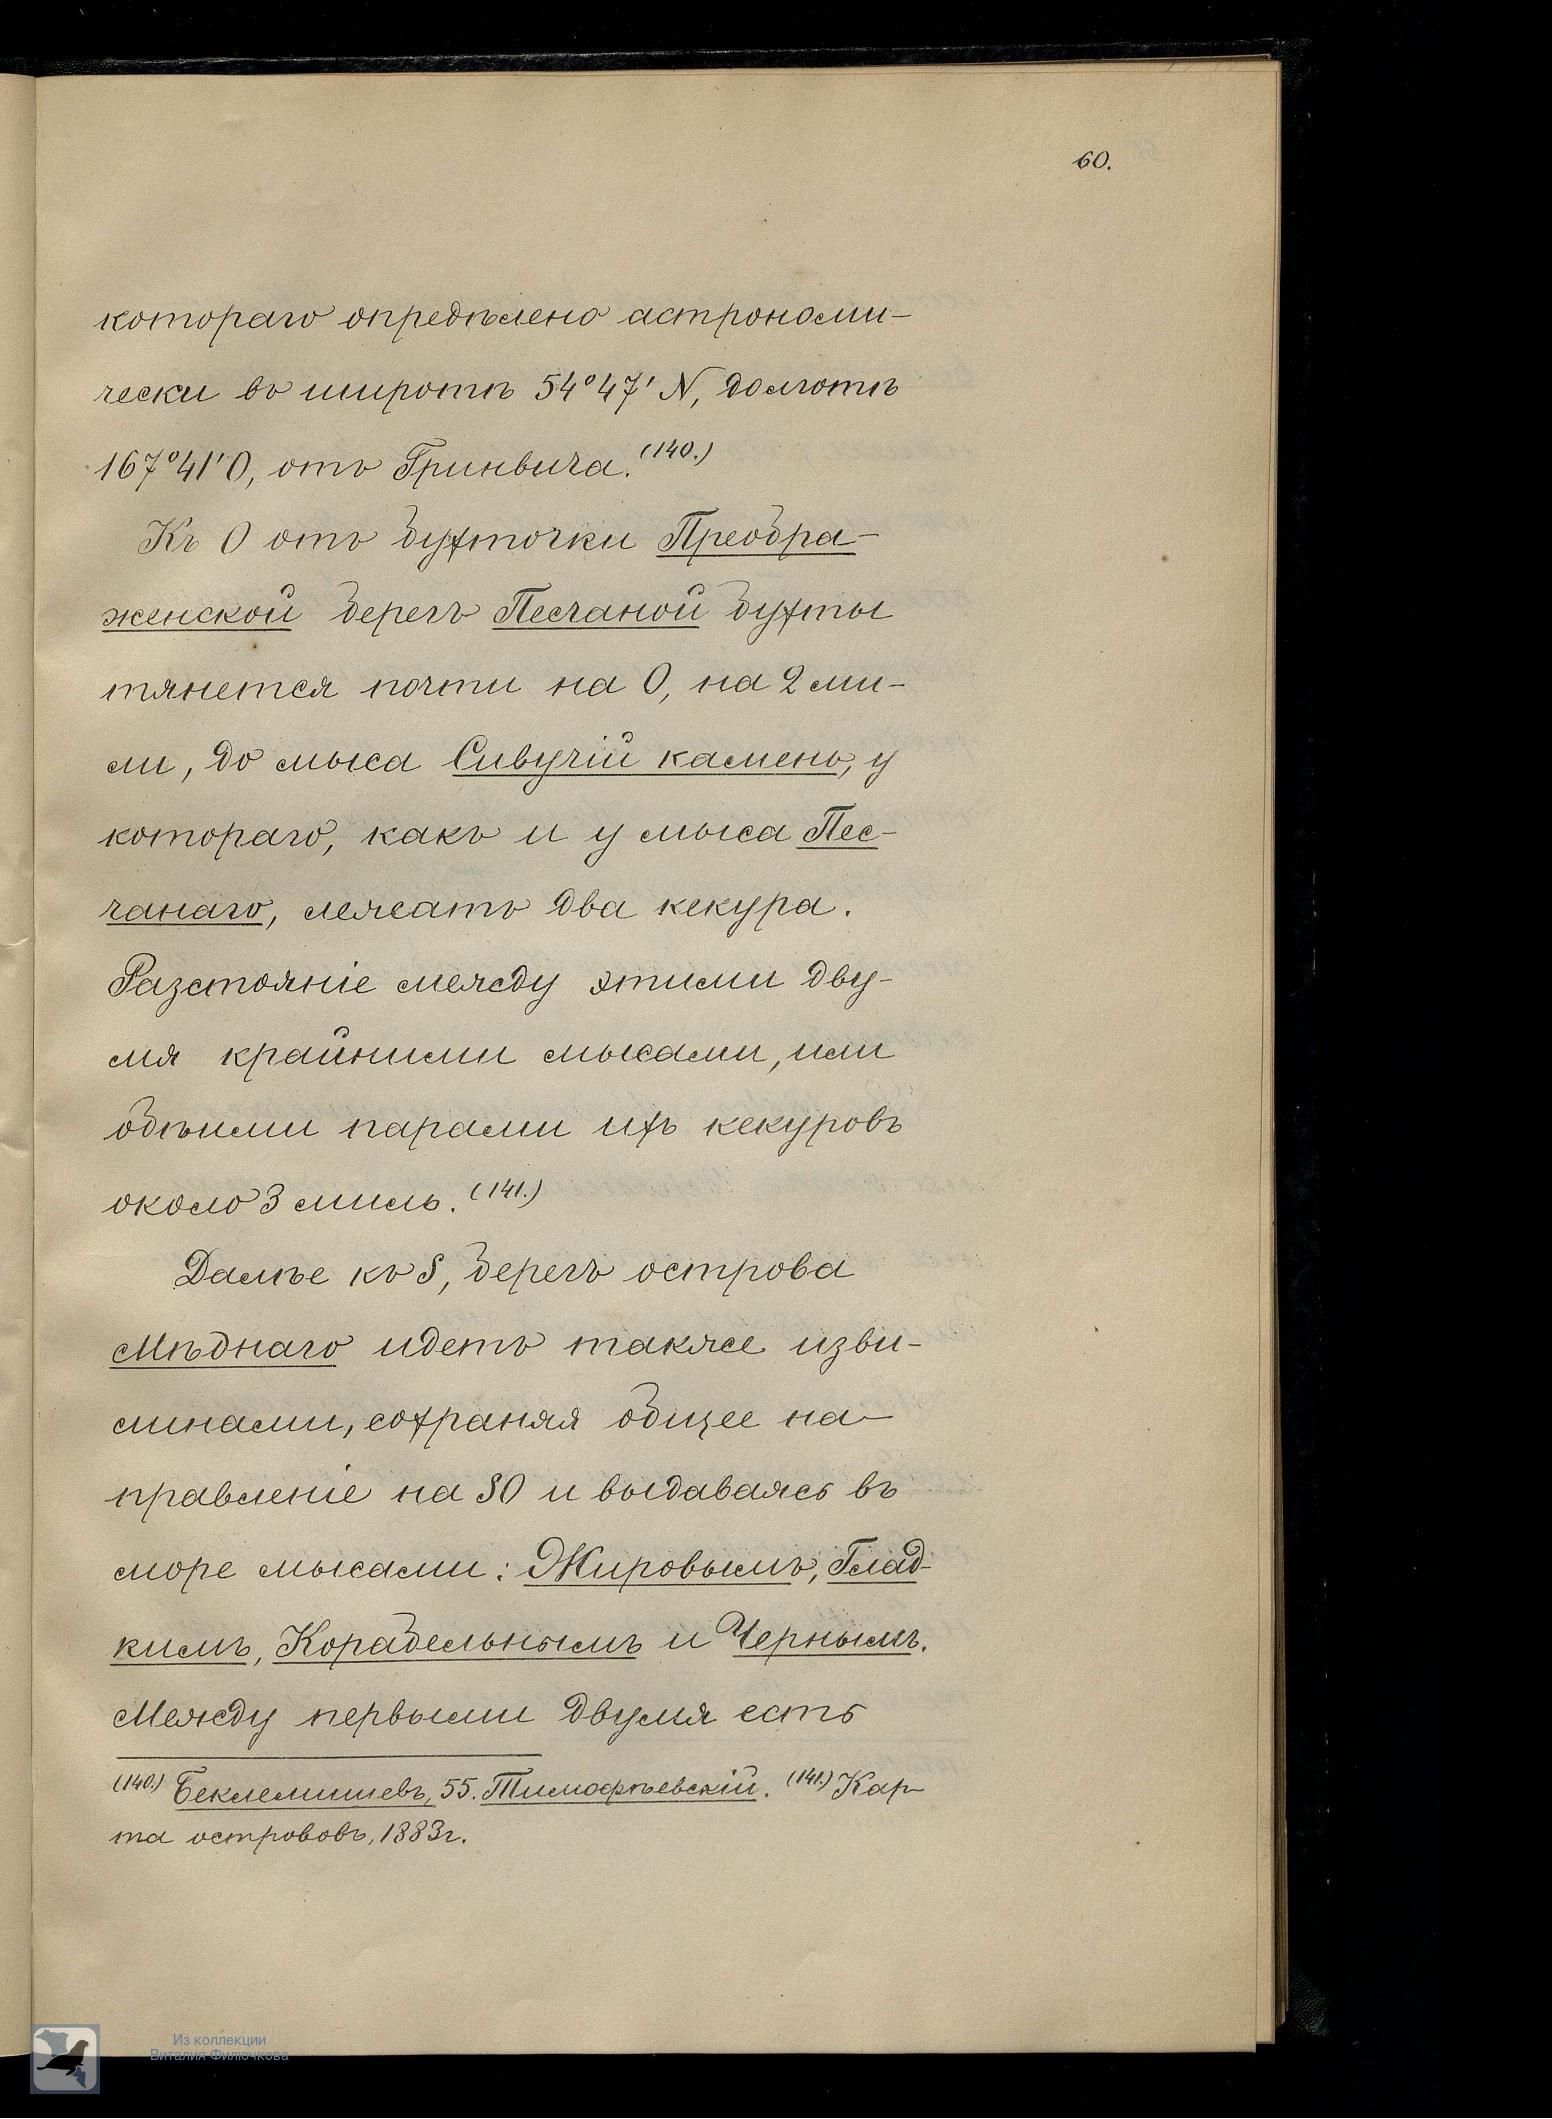 60.
котораго опредѣлено астрономи-
чески въ широтѣ 54°47' N, долготѣ
167°41' O, отъ Гринвича.(140.)
Къ O отъ бухточки Преобра-
женской берегъ Песчаной бухты
тянется почти на O, на 2 ми-
ли, до мыса Сивучій камень, у
котораго, какъ и у мыса Пес-
чанаго, лежатъ два кекура.
Разстояніе между этими дву-
мя крайними мысами, или
обѣими парами ихъ кекуровъ
около 3 миль.(141.)
Далѣе къ S, берегъ острова
Мѣднаго идетъ также изви-
линами, сохраняя общее на-
правленіе на SO и выдаваясь въ
море мысами: Жировымъ, Глад-
кимъ, Корабельнымъ и Чернымъ.
Между первыми двумя есть
(140.) Беклемишевъ, 55. Тимофѣевскій. (141.) Кар-
та острововъ, 1883г.
Из коллекции
Виталия Филючкова